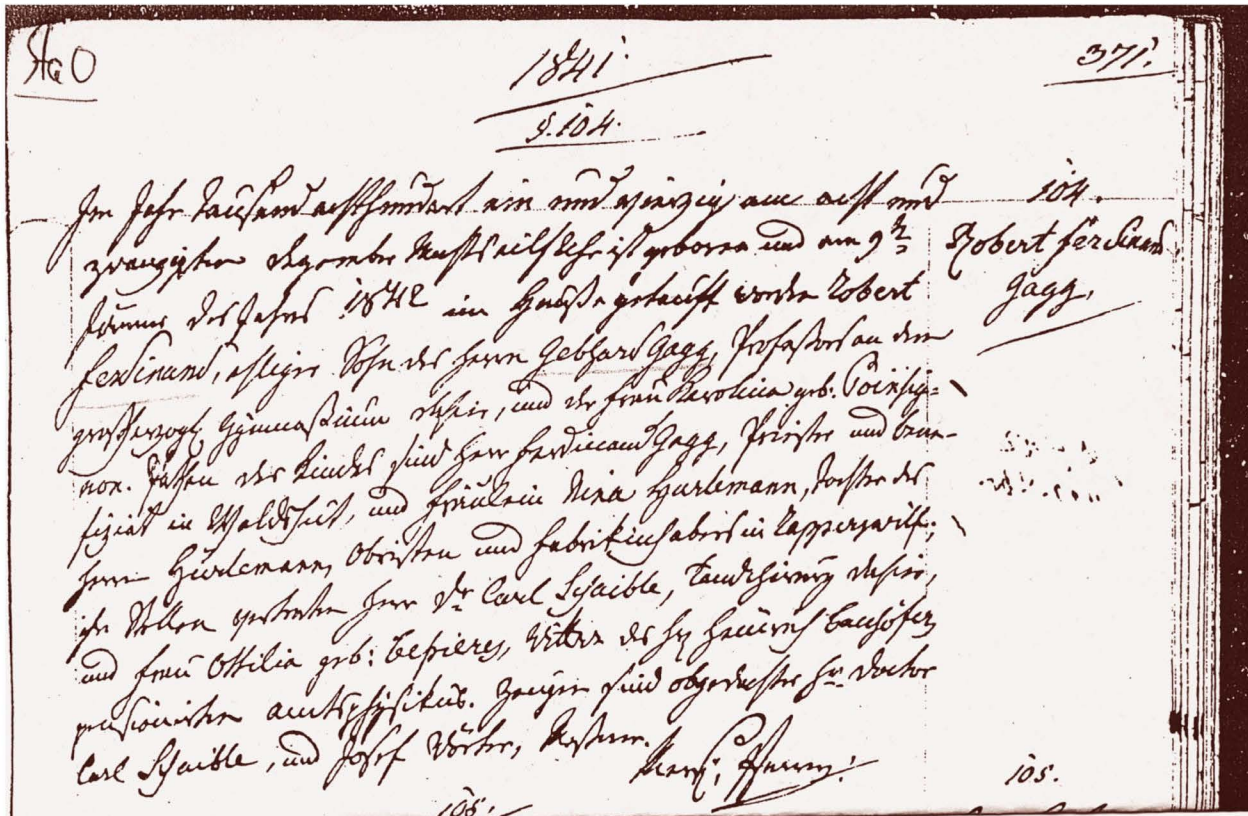 1841.
371.
§. 104.
Im Jahr tausend achthundert ein und vierzig am acht und
zwanzigsten Dezember Nachts eilf Uhr ist geboren und am 9ten
Jänner des Jahres 1842 im Hause getauft worden Robert
Ferdinand, ehliger Sohn des Herrn Gebhard Gagg, Professors an dem
großherzogl. Gymnasium dahier, und der Frau Karolina geb. Poinsig-
non. Pathen des Kindes sind Herr Ferdinand Gagg, Priester und Bene-
fiziat in Waldshut, und Fräulein Nina Hürlemann, Tochter des
Herrn Hürlemann, Obristen und Fabrikinhabers in Rapperswil;
ihre Stellen vertreten Herr Dr Carl Schaible, dahier,
und Frau Ottilia geb: Wittwe des H. Heinrich
pensionirten Amtsphysikus. Zeugen sind obgedachter Hr. Doctor
Carl Schaible, und Josef Wörter, Meßner.
Pfarrer.
104.
Robert Ferdinand
Gagg.
105.
105.